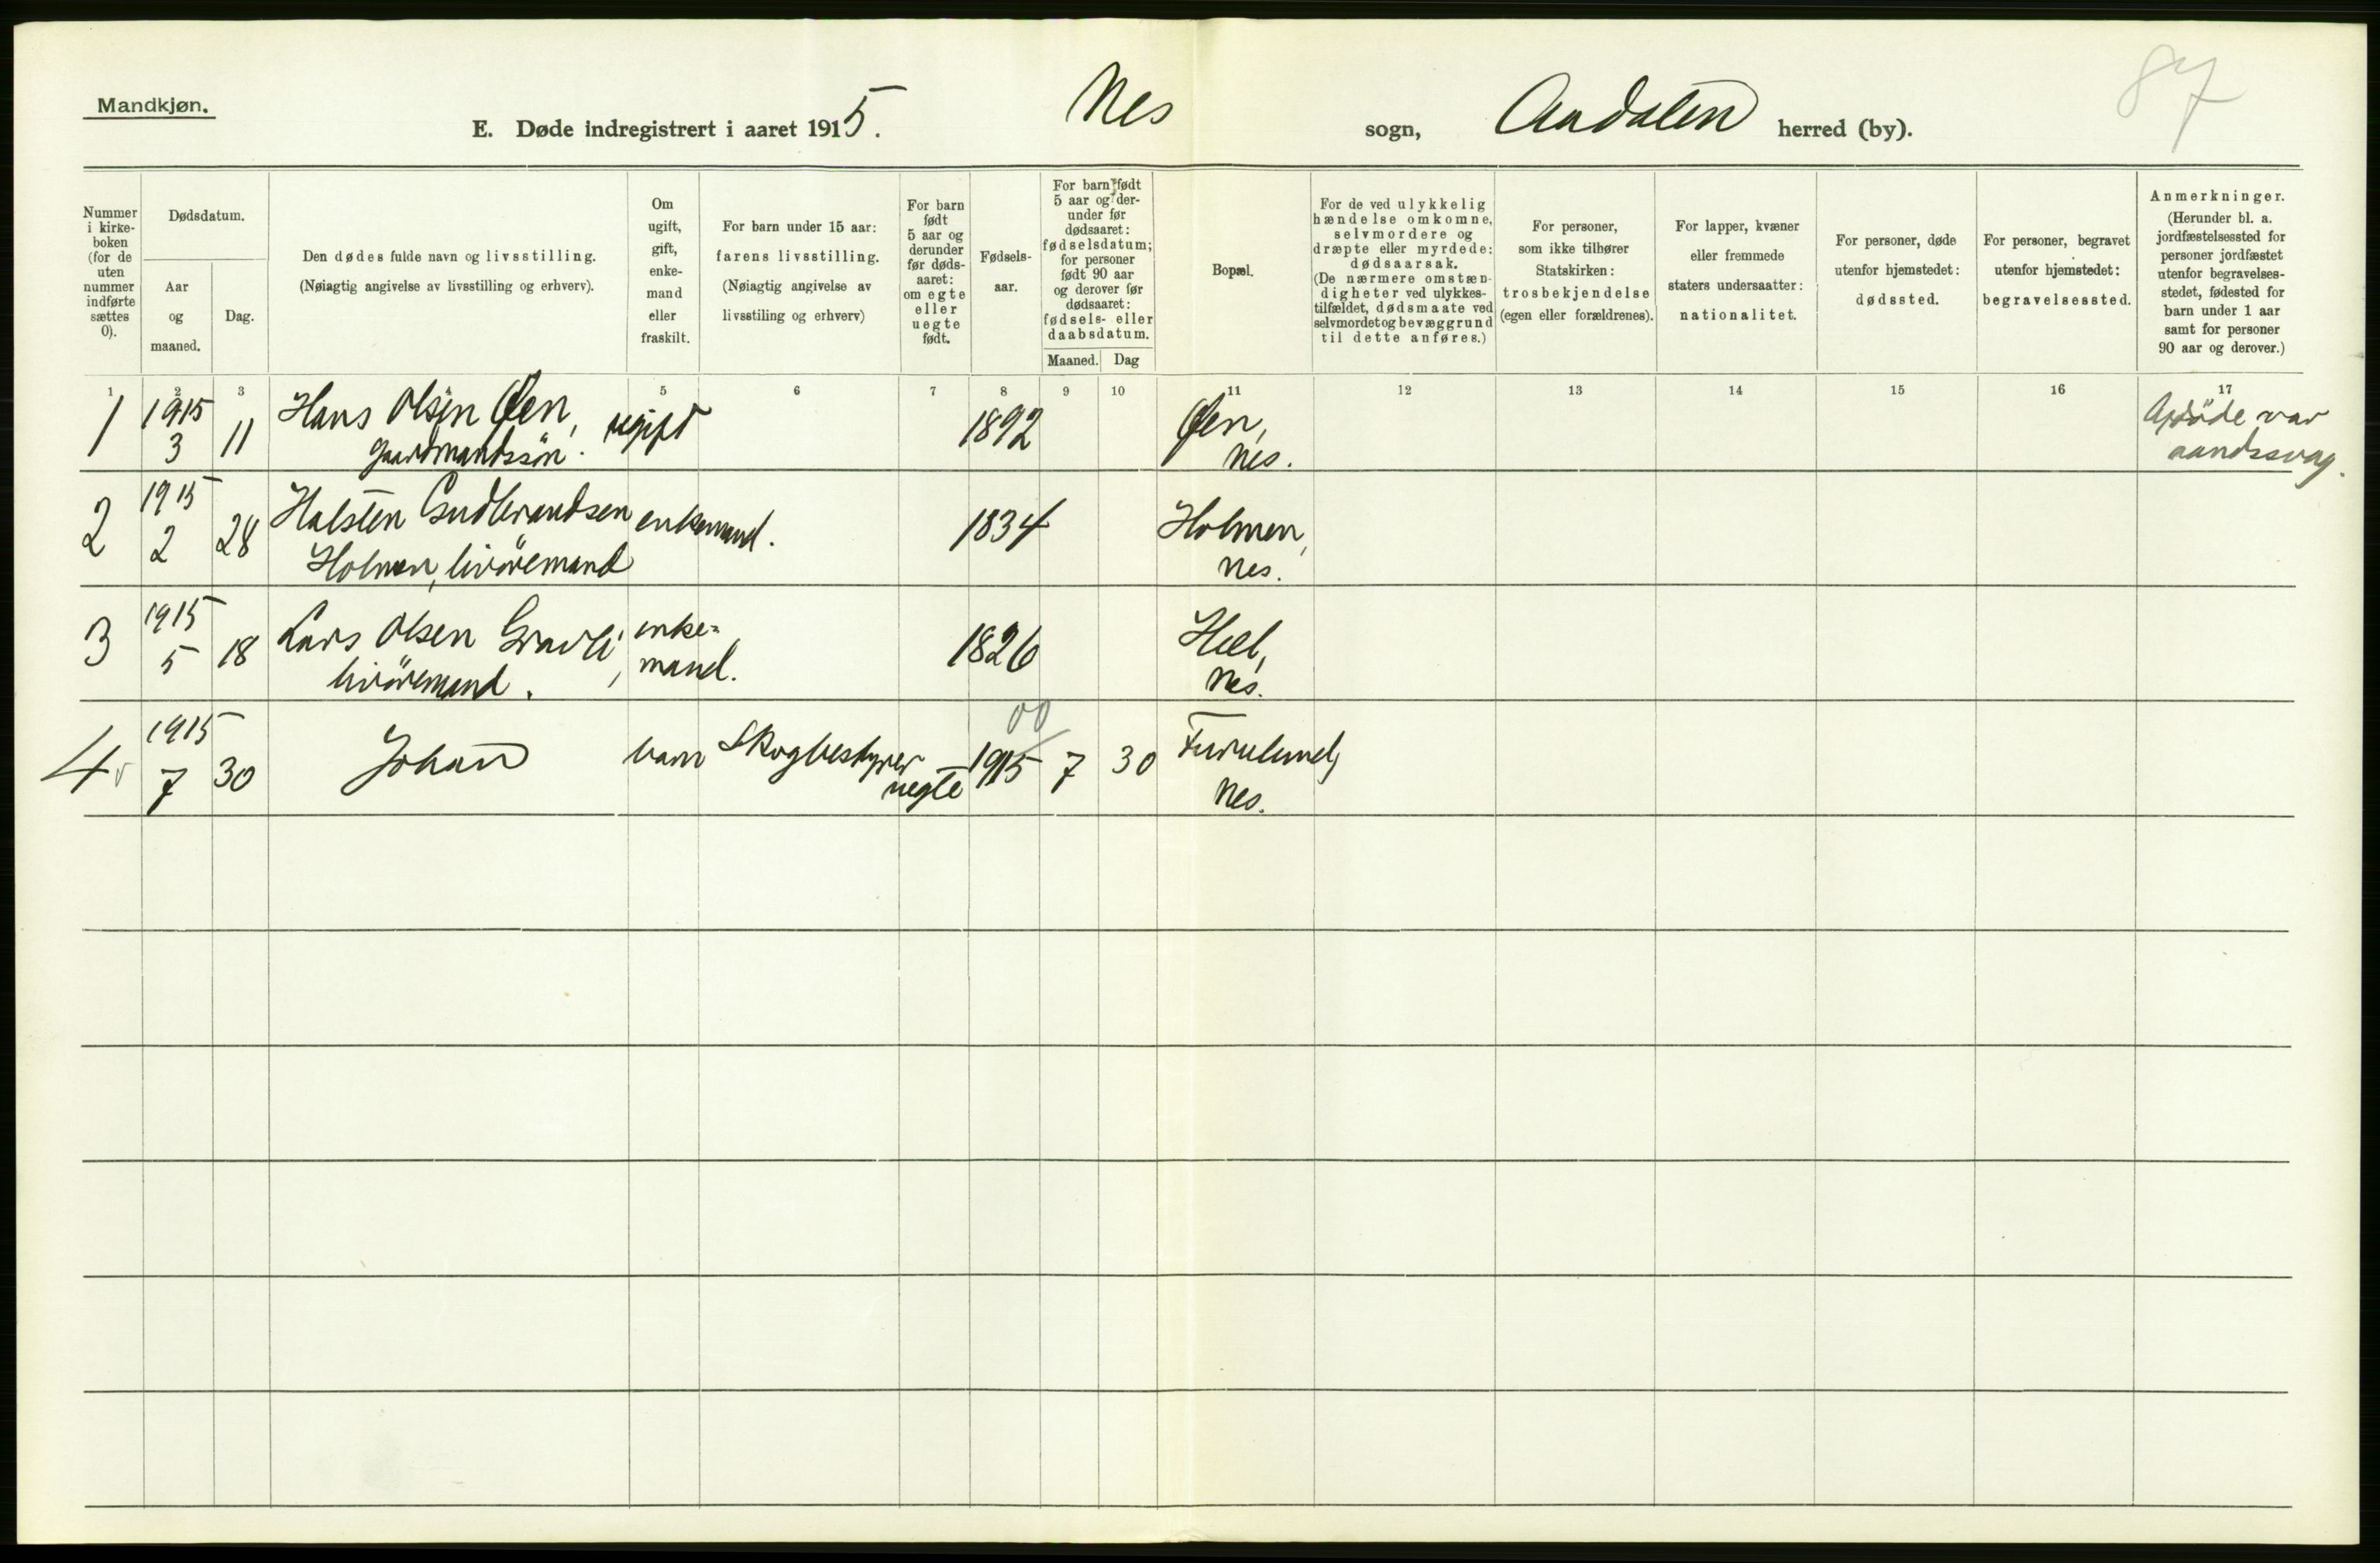 Mandkjøn.
E. Døde indregistrert i aaret 1915. Nes sogn, Aadalen herred (by).
87
Nummer
i kirke-
boken
(for de
uten
nummer
indførte
sættes
0).
Dødsdatum.
Aar
og
maaned.
Dag.
Den dødes fulde navn og livsstilling.
(Nøiagtig angivelse av livsstilling og erhverv).
Om
ugift,
gift,
enke-
mand
eller
fraskilt.
For barn under 15 aar:
farens livsstilling.
(Nøiagtig angivelse av
livsstiling og erhverv)
For barn
født
5 aar og
derunder
før døds-
aaret:
om egte
eller
uegte
født.
Fødsels-
aar.
For barn født
5 aar og der-
under før
dødsaaret:
fødselsdatum;
for personer
født 90 aar
og derover før
dødsaaret:
fødsels- eller
daabsdatum.
Maaned. Dag
Bopæl.
For de ved ulykkelig
hændelse omkomne,
selvmordere og
dræpte eller myrdede:
dødsaarsak.
(De nærmere omstæn-
digheter ved ulykkes-
tilfældet, dødsmaate ved
selvmordet og bevæggrund
til dette anføres.)
For personer,
som ikke tilhører
Statskirken:
trosbekjendelse
(egen eller forældrenes).
For lapper, kvæner
eller fremmede
staters undersaatter:
nationalitet.
For personer, døde
utenfor hjemstedet:
dødssted.
For personer, begravet
utenfor hjemstedet:
begravelsessted.
Anmerkninger.
(Herunder bl. a.
jordfæstelsessted for
personer jordfæstet
utenfor begravelses-
stedet, fødested for
barn under 1 aar
samt for personer
90 aar og derover.)
1 2 3 4 5 6 7 8 9 10 11 12 13 14 15 16 17
1 1915 3 11 Hans Olsen Øen, ugift 1892 Øen, Afdöde var
gaardmandssön. Nes. aandssvag.
2 1915 2 28 Halsten Gudbrandsen enkemand. 1834 Holmen,
Holmen, livöremand Nes.
3 1915 5 18 Lars Olsen Gravli, enke= 1826 Hæl,
livöremand. mand. Nes.
00
4 1915 7 30 Johan barn Skogbestyrer uegte 1915 7 30 Furulund,
Nes.